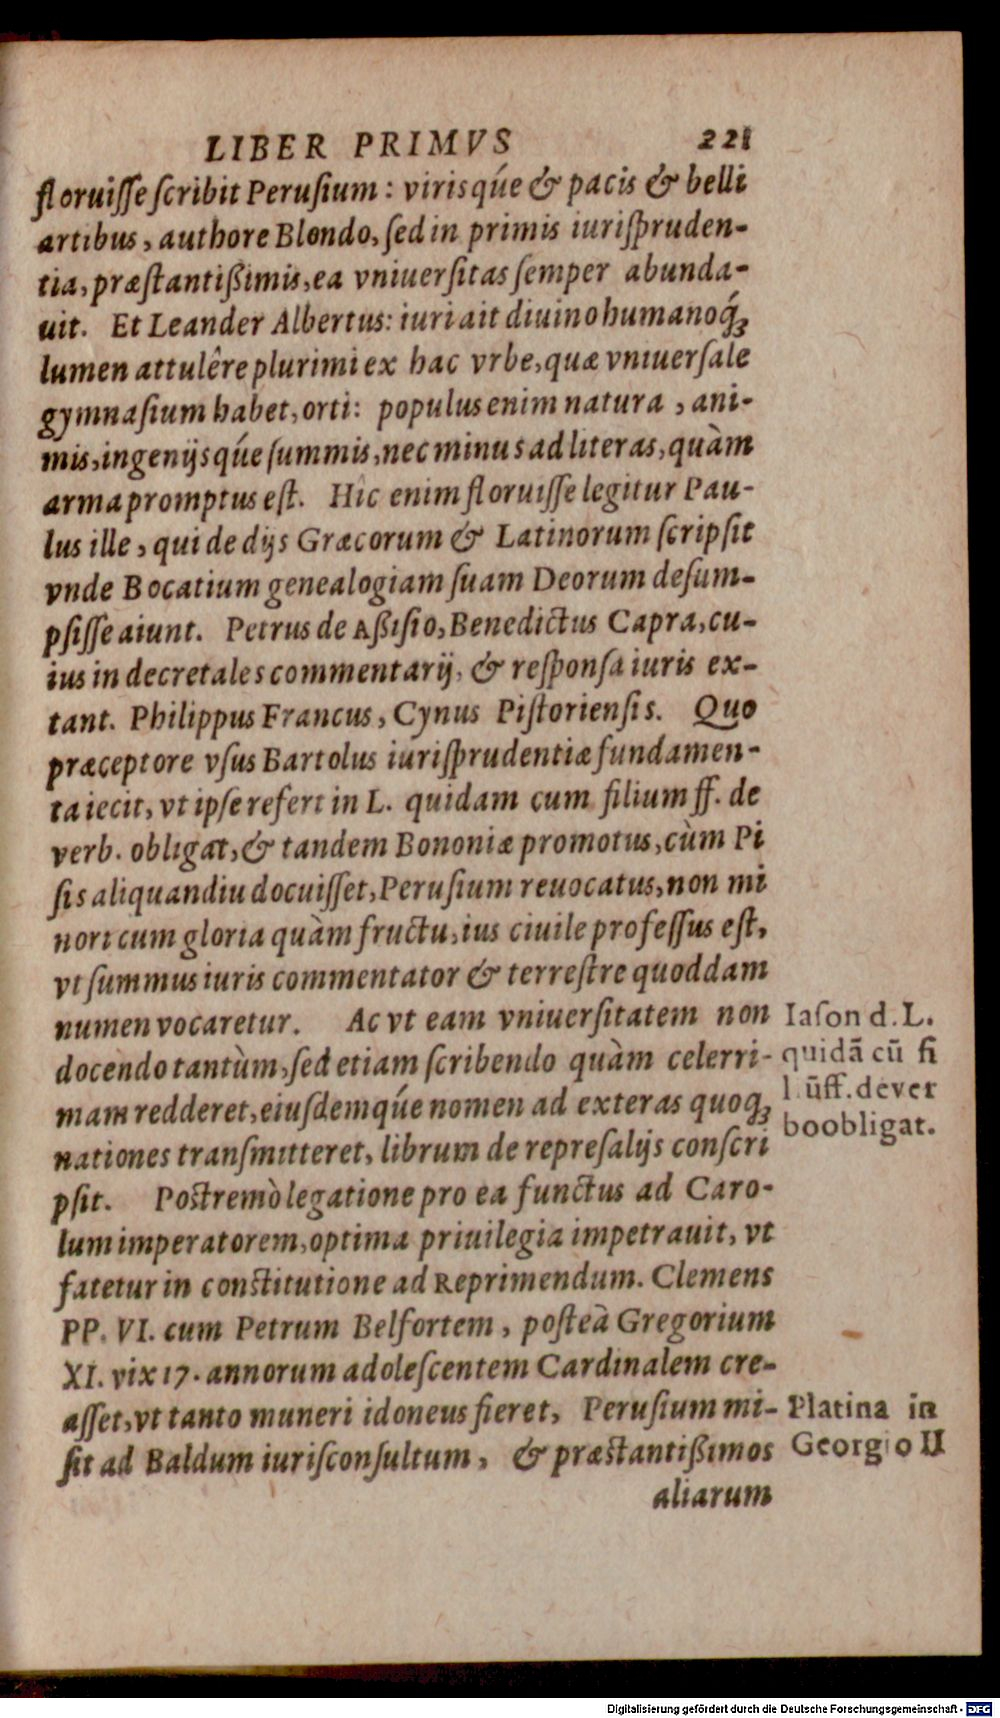 LIBER PRIMVS 221
floruiſſe ſcribit Peruſium : virisq́ue & pacis & belli
artibus, authore Blondo, ſed in primis iuriſpruden-
tia, præſtantißimis, ea vniuerſitas ſemper abunda-
uit. Et Leander Albertus: iuri ait diuino humanoq́;
lumen attulêre plurimi ex hac vrbe, quæ vniuerſale
gymnaſium habet, orti: populus enim natura , ani-
mis, ingenijsq́ue ſummis, nec minus ad literas, quàm
arma promptus eſt. Hic enim floruiſſe legitur Pau-
lus ille , qui de dijs Græcorum & Latinorum ſcripſit
vnde Bocatium genealogiam ſuam Deorum deſum-
pſiſſe aiunt. Petrus de Aßiſio, Benedictus Capra, cu-
ius in decretales commentarij, & reſponſa iuris ex-
tant. Philippus Francus , Cynus Piſtorienſis. Quo
præceptore vſus Bartolus iuriſprudentiæ fundamen-
ta iecit, vt ipſe refert in L. quidam cum filium ff. de
verb. obligat, & tandem Bononiæ promotus, cùm Pi
ſis aliquandiu docuiſſet, Peruſium reuocatus, non mi
nori cum gloria quàm fructu, ius ciuile profeſſus eſt,
vt ſummus iuris commentator & terreſtre quoddam
numen vocaretur. Ac vt eam vniuerſitatem non
docendo tantùm, ſed etiam ſcribendo quàm celerri-
mam redderet, eiuſdemq́ue nomen ad exteras quoq;
nationes tranſmitteret, librum de repreſalijs conſcri
pſit. Poſtremò legatione pro ea functus ad Caro-
lum imperatorem, optima priuilegia impetrauit, vt
fatetur in conſtitutione ad Reprimendum. Clemens
PP. VI. cum Petrum Belfortem , poſteà Gregorium
XI. vix 17. annorum adoleſcentem Cardinalem cre-
aſſet, vt tanto muneri idoneus fieret, Peruſium mi-
ſit ad Baldum iuriſconſultum , & præſtantißimos
aliarum
Iaſon d. L.
quidã cũ fi
l ũff. de ver
boobligat.
Platina in
Georgio II
Digitalisierung gefördert durch die Deutsche Forschungsgemeinschaft - DFG